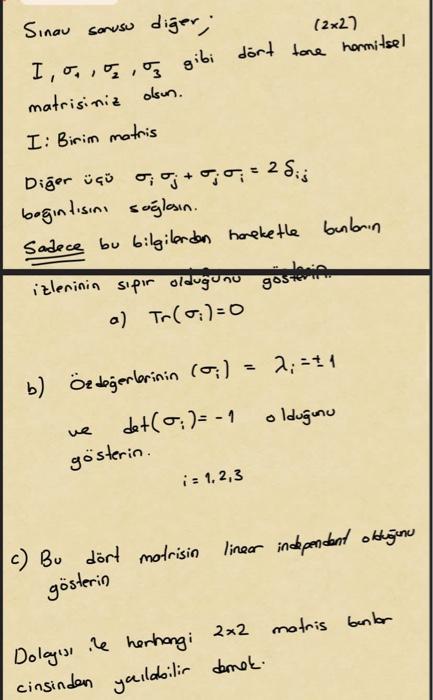 Sınav sorusu diğer;
(2x2)
I, σ₁, σ₂, σ₃ gibi dört tane hermitsel
matrisiniz olsun.
I: Birim matris
Diğer üçü σᵢσⱼ + σⱼσᵢ = 2δᵢⱼ
bağıntısını sağlasın.
Sadece bu bilgilerden hareketle bunların
izlerinin sıfır olduğunu gösterin.
a) Tr(σᵢ)=0
b) Özdeğerlerinin (σᵢ) = λᵢ=±1
ve det(σᵢ)= -1 olduğunu
gösterin.
i = 1,2,3
c) Bu dört matrisin linear independent olduğunu
gösterin
Dolayısı ile herhangi 2x2 matris bunlar
cinsinden yazılabilir demek.